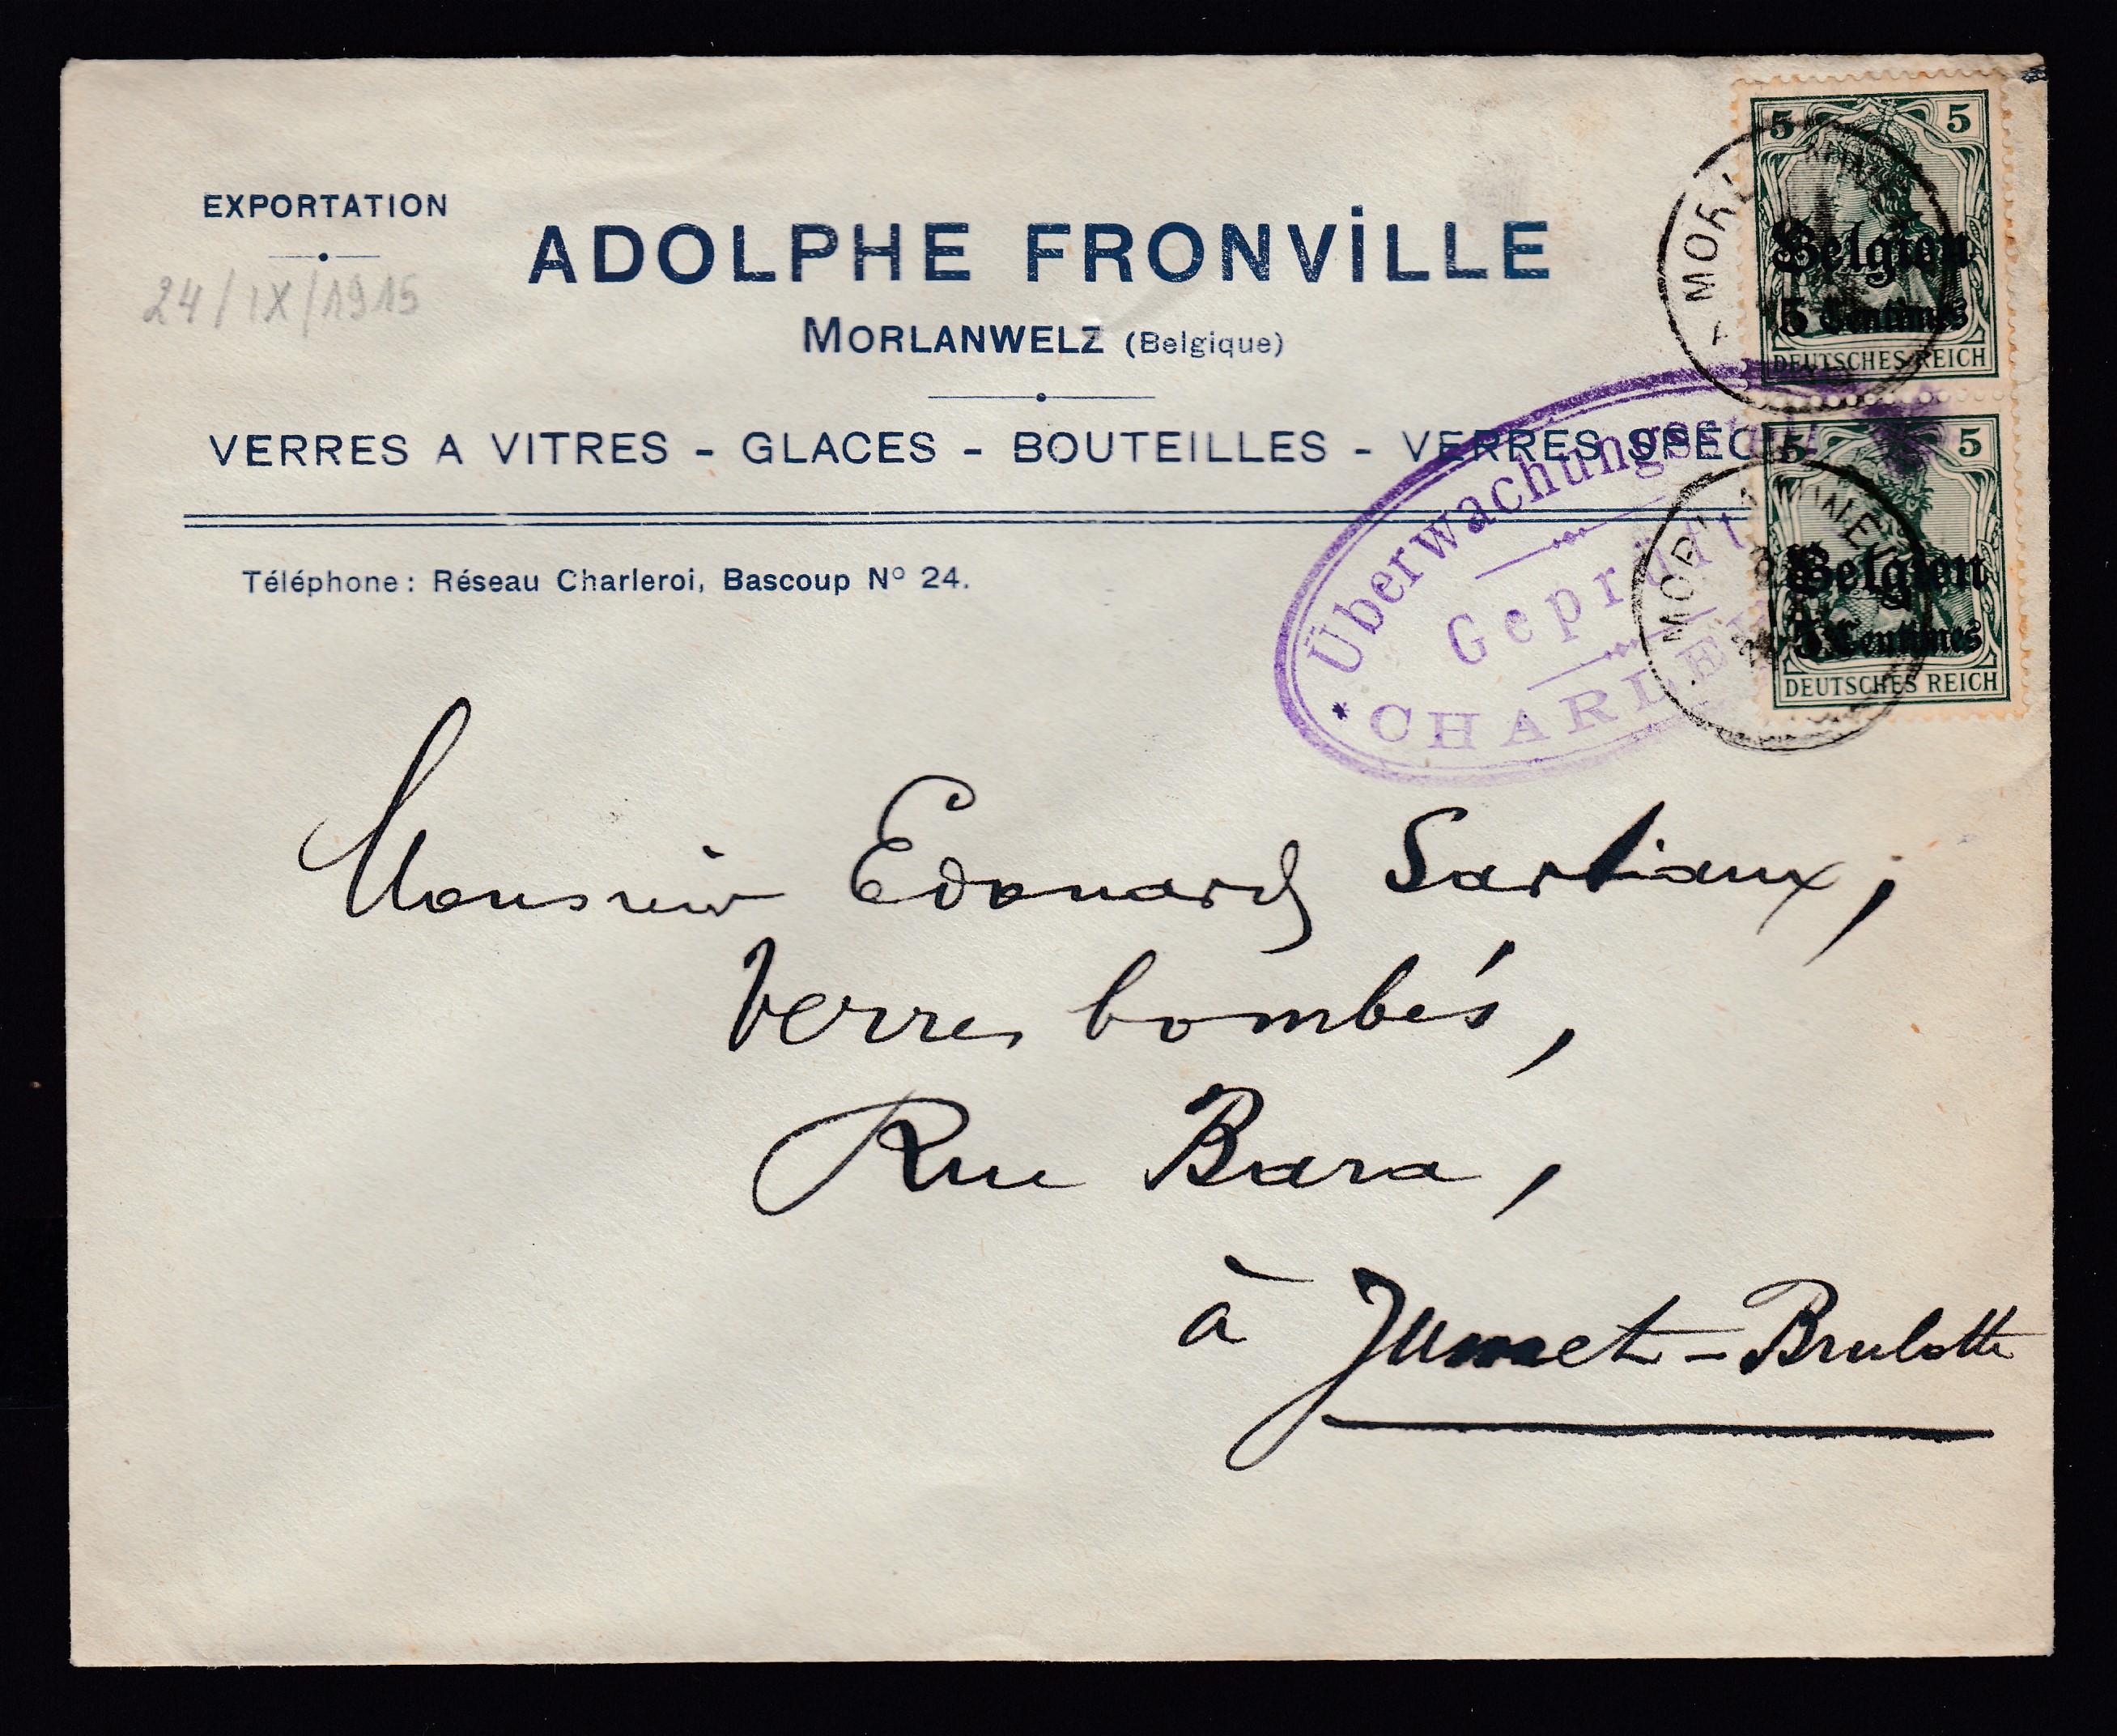 EXPORTATION
24/IX/1915
ADOLPHE FRONVILLE
MORLANWELZ (Belgique)
VERRES A VITRES - GLACES - BOUTEILLES - VERRES SPEC
Téléphone: Réseau Charleroi, Bascoup N° 24.
5 5
Belgien
5 Centimes
DEUTSCHES REICH
5 5
Belgien
5 Centimes
DEUTSCHES REICH
Überwachungsstelle
Geprüft
CHARLE
Monsieur Edouard Sartiaux,
Verres bombés,
Rue Bara,
à Jumet-Brulotte